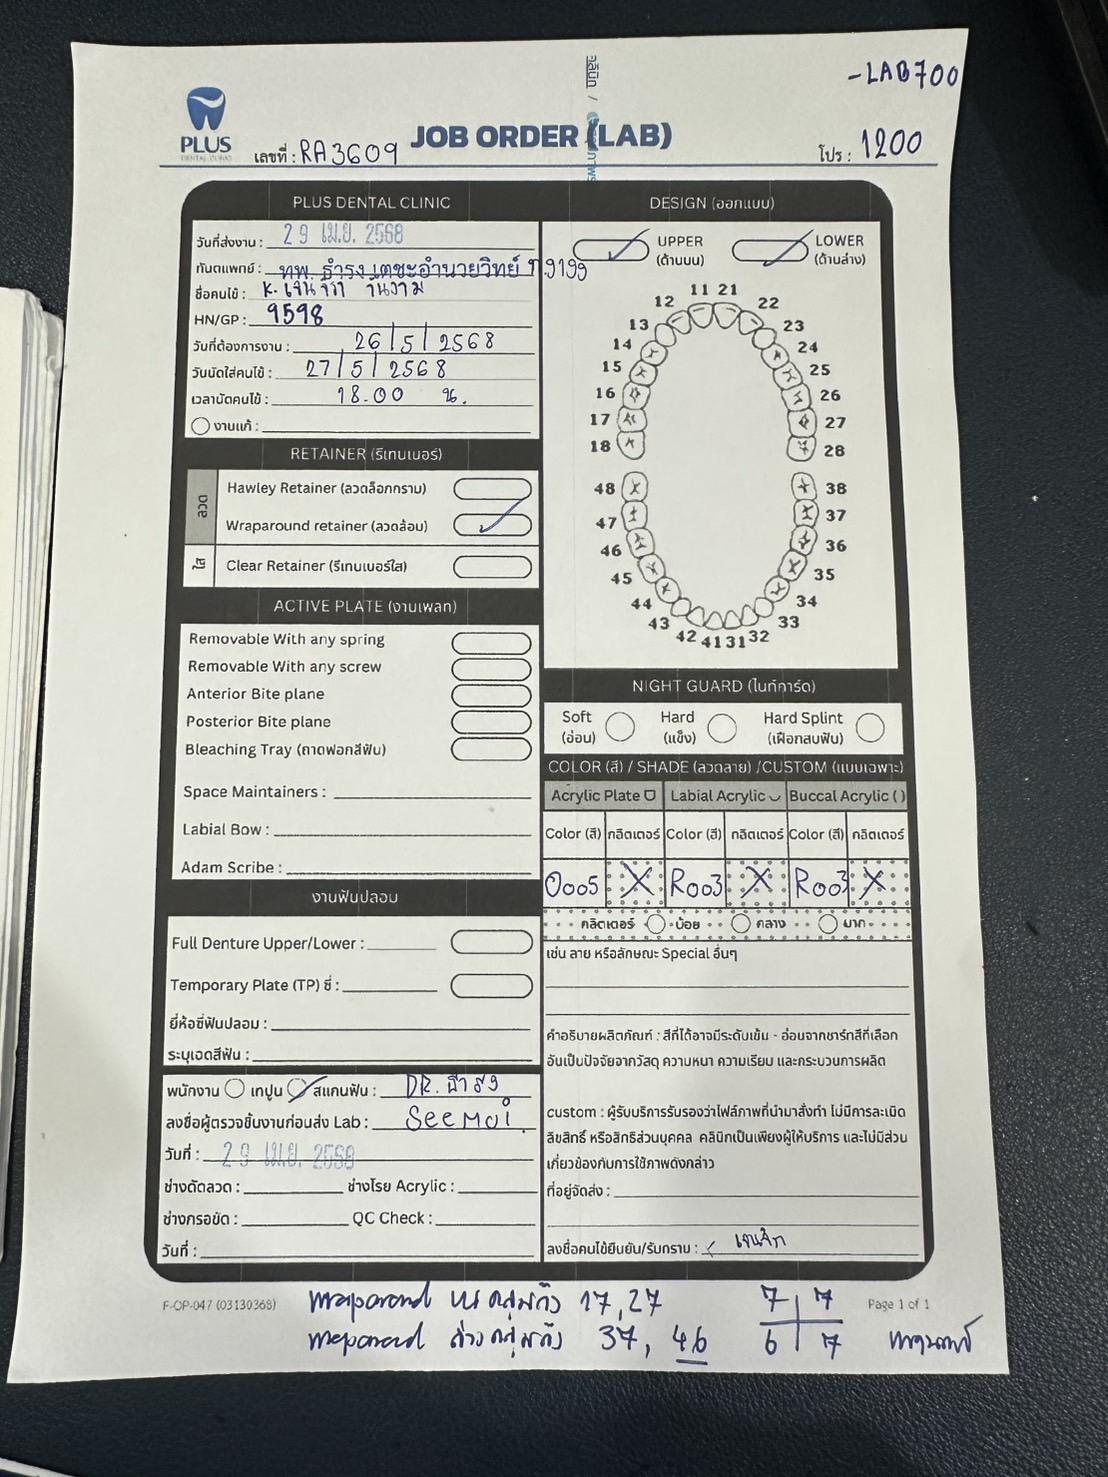 -LAB700
PLUS
DENTAL CLINIC
เลขที่ : RA3609
JOB ORDER (LAB)
โปร : 1200
PLUS DENTAL CLINIC
วันที่ส่งงาน : 29 เม.ย. 2568
ทันตแพทย์ : ทพ. ธำรง เตชะอำนวยวิทย์ ท.9199
ชื่อคนไข้ : K. เจนจิรา
HN/GP : 9598
วันที่ต้องการงาน : 26/5/2568
วันนัดใส่คนไข้ : 27/5/2568
เวลานัดคนไข้ : 18.00 น.
งานแก้ :
RETAINER (รีเทนเนอร์)
ลวด
Hawley Retainer (ลวดล็อกกราม)
Wraparound retainer (ลวดล้อม)
ใส
Clear Retainer (รีเทนเนอร์ใส)
ACTIVE PLATE (งานเพลท)
Removable With any spring
Removable With any screw
Anterior Bite plane
Posterior Bite plane
Bleaching Tray (ถาดฟอกสีฟัน)
Space Maintainers :
Labial Bow :
Adam Scribe :
งานฟันปลอม
Full Denture Upper/Lower :
Temporary Plate (TP) ซี่ :
ยี่ห้อซี่ฟันปลอม :
ระบุเฉดสีฟัน :
พนักงาน เทปูน สแกนฟัน : DR. ธำรง
ลงชื่อผู้ตรวจชิ้นงานก่อนส่ง Lab : SEEMOI
วันที่ : 29 เม.ย. 2568
ช่างดัดลวด : ช่างโรย Acrylic :
ช่างกรอขัด : QC Check :
วันที่ :
DESIGN (ออกแบบ)
UPPER (ด้านบน)
LOWER (ด้านล่าง)
11 21
12 22
13 23
14 24
15 25
16 26
17 27
18 28
48 38
47 37
46 36
45 35
44 34
43 33
42 41 31 32
NIGHT GUARD (ไนท์การ์ด)
Soft (อ่อน)
Hard (แข็ง)
Hard Splint (เฝือกสบฟัน)
COLOR (สี) / SHADE (ลวดลาย) /CUSTOM (แบบเฉพาะ)
Acrylic Plate Labial Acrylic Buccal Acrylic ( )
Color (สี) กลิตเตอร์ Color (สี) กลิตเตอร์ Color (สี) กลิตเตอร์
O005 X R003 X R003 X
กลิตเตอร์ น้อย กลาง มาก
เช่น ลาย หรือลักษณะ Special อื่นๆ
คำอธิบายผลิตภัณฑ์ : สีที่ได้อาจมีระดับเข้ม - อ่อนจากชาร์ทสีที่เลือก
อันเป็นปัจจัยจากวัสดุ ความหนา ความเรียบ และกระบวนการผลิต
custom : ผู้รับบริการรับรองว่าไฟล์ภาพที่นำมาสั่งทำ ไม่มีการละเมิด
ลิขสิทธิ์ หรือสิทธิส่วนบุคคล คลินิกเป็นเพียงผู้ให้บริการ และไม่มีส่วน
เกี่ยวข้องกับการใช้ภาพดังกล่าว
ที่อยู่จัดส่ง :
ลงชื่อคนไข้ยืนยัน/รับทราบ :
F-OP-047 (03130368)
Page 1 of 1
wraparound บน 17, 27
wraparound ล่าง 37, 46
7 7
6 7